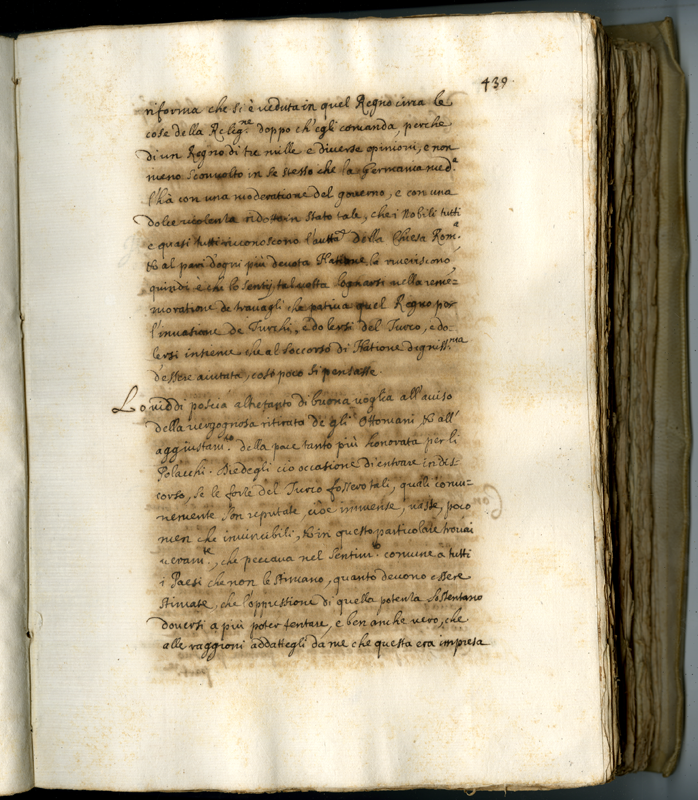 439.
riforma che si è veduta in quel Regno circa le
cose della Relig.ne doppo ch'egli comanda, perche
di un Regno di tre mille e diverse opinioni, e non
meno sconvolto in se stesso che la Germania med.a
l'hà con una moderatione del governo, e con una
dolce violenza ridotta in stato tale, che i Nobili tutti
e quasi tutti riconoscono l'autt.à della Chiesa Rom.a
& al pari d'ogni più devota Natione la riveriscono,
quindi è ch'io lo sentij tal volta lagnarsi nella reme-
moratione de travagli che pativa quel Regno per
l'invasione de Turchi, e dolersi del Turco, e do-
lersi insieme che al soccorso di Natione digniss.ma
d'essere aiutata, così poco si pensasse.
Lo viddi poscia altretanto di buona voglia all'aviso
della vergognosa ritirata de gli Ottomani & all'
aggiustam.to della pace tanto più honorata per li
Polacchi. Diedegli ciò occasione di entrare in dis-
corso, se le forze del Turco fossero tali, quali comu-
nemente son reputate cioè immense, vaste, poco
men che invincibili, & in questo particolare trovai
veram.te, che peccava nel sentim.o comune a tutti
i Paesi che non le stimano, quanto devono essere
stimate, che l'oppressione di quella potenza sostentano
doversi a più poter tentare, e ben anche vero, che
alle raggioni addattegli da me che questa era impresa